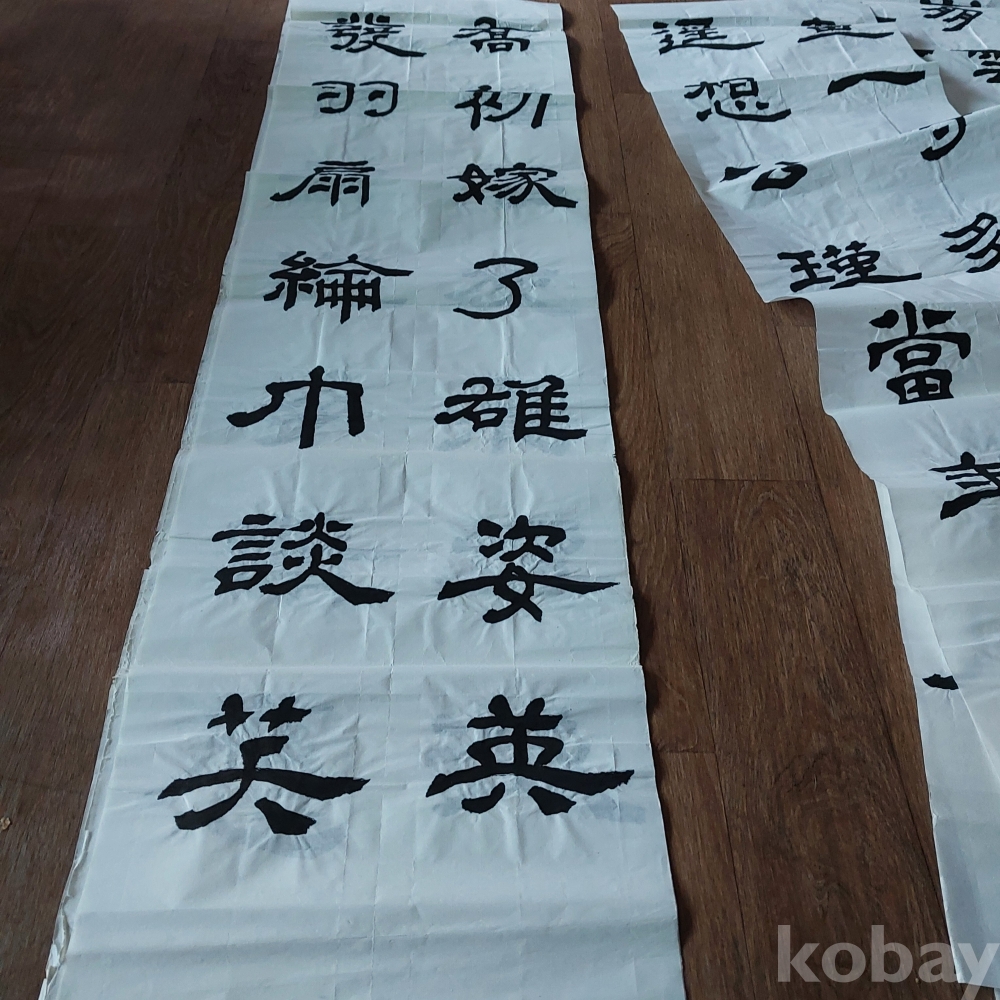 崩
一多
遙想公瑾當年
喬初嫁了雄姿英
發羽扇綸巾談笑
kobay